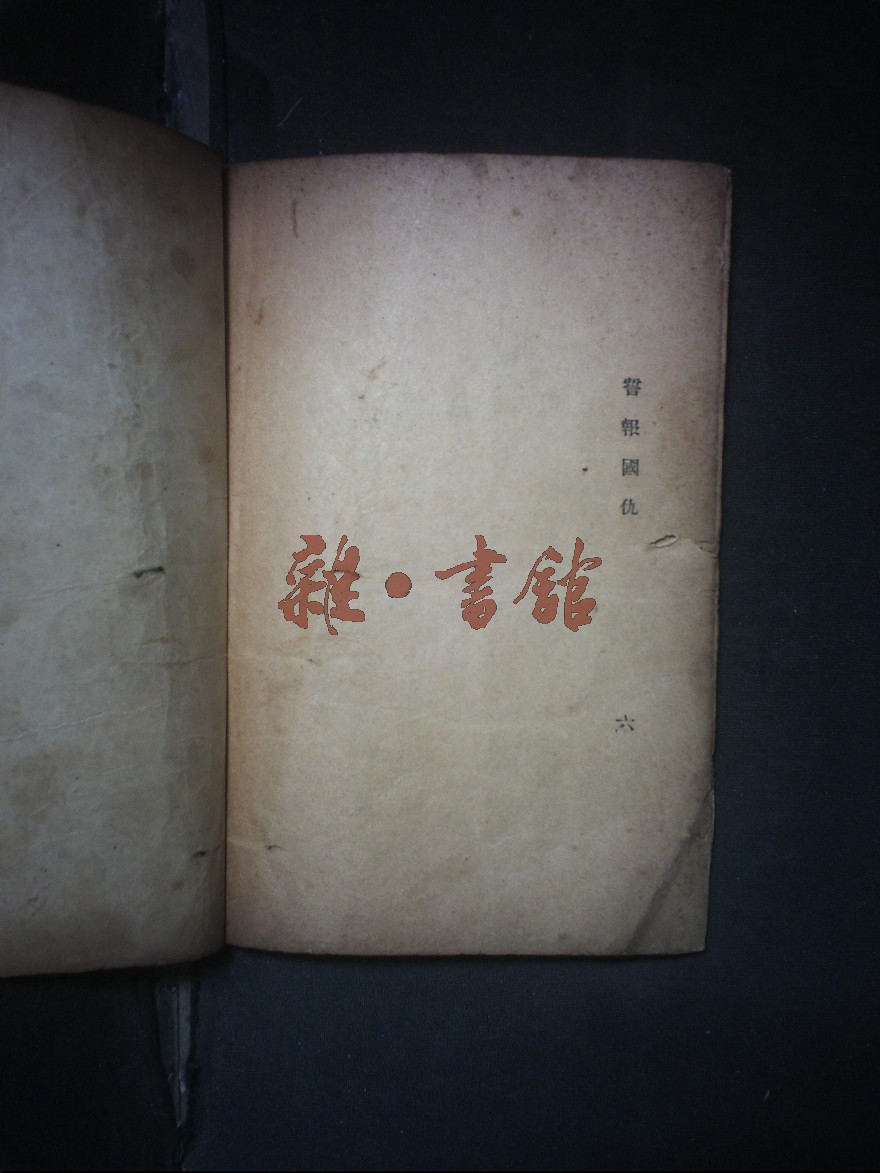 誓報國仇
六
雜·書館